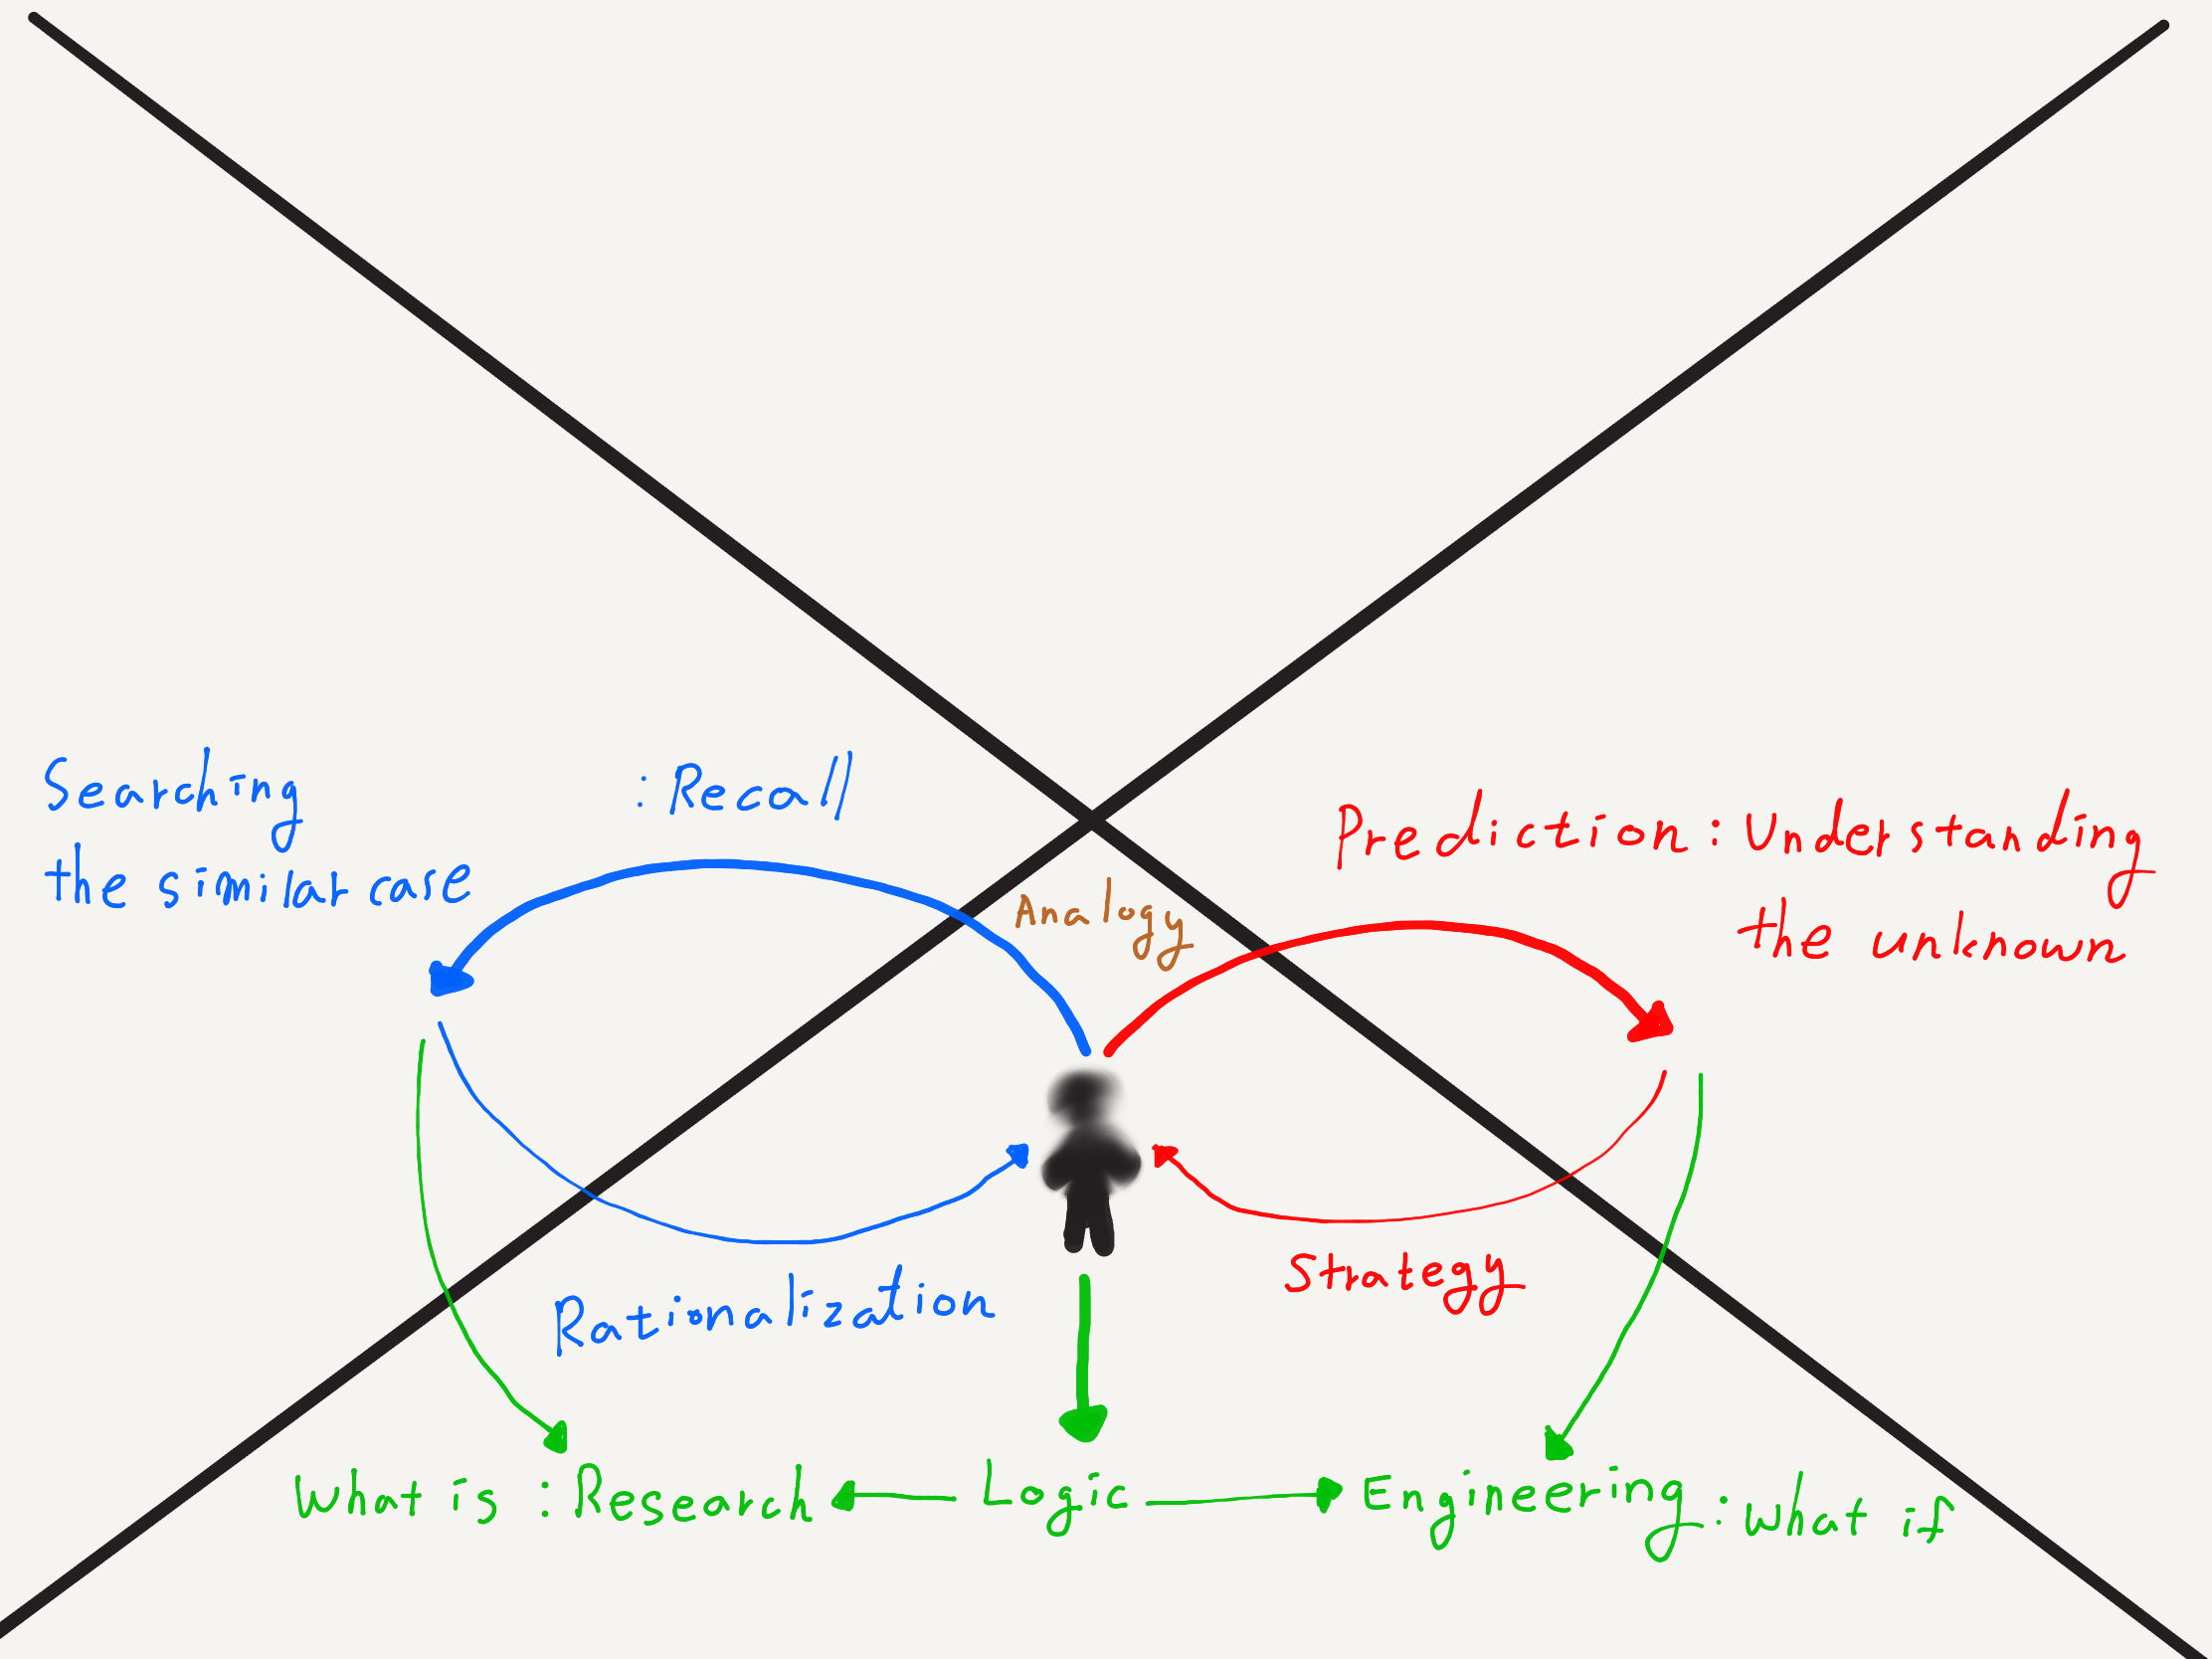 Searching : Recall
the similar case
Prediction : Understanding
the unknown
Analogy
Rationalization
Strategy
What is : Research
Logic
Engineering : What if